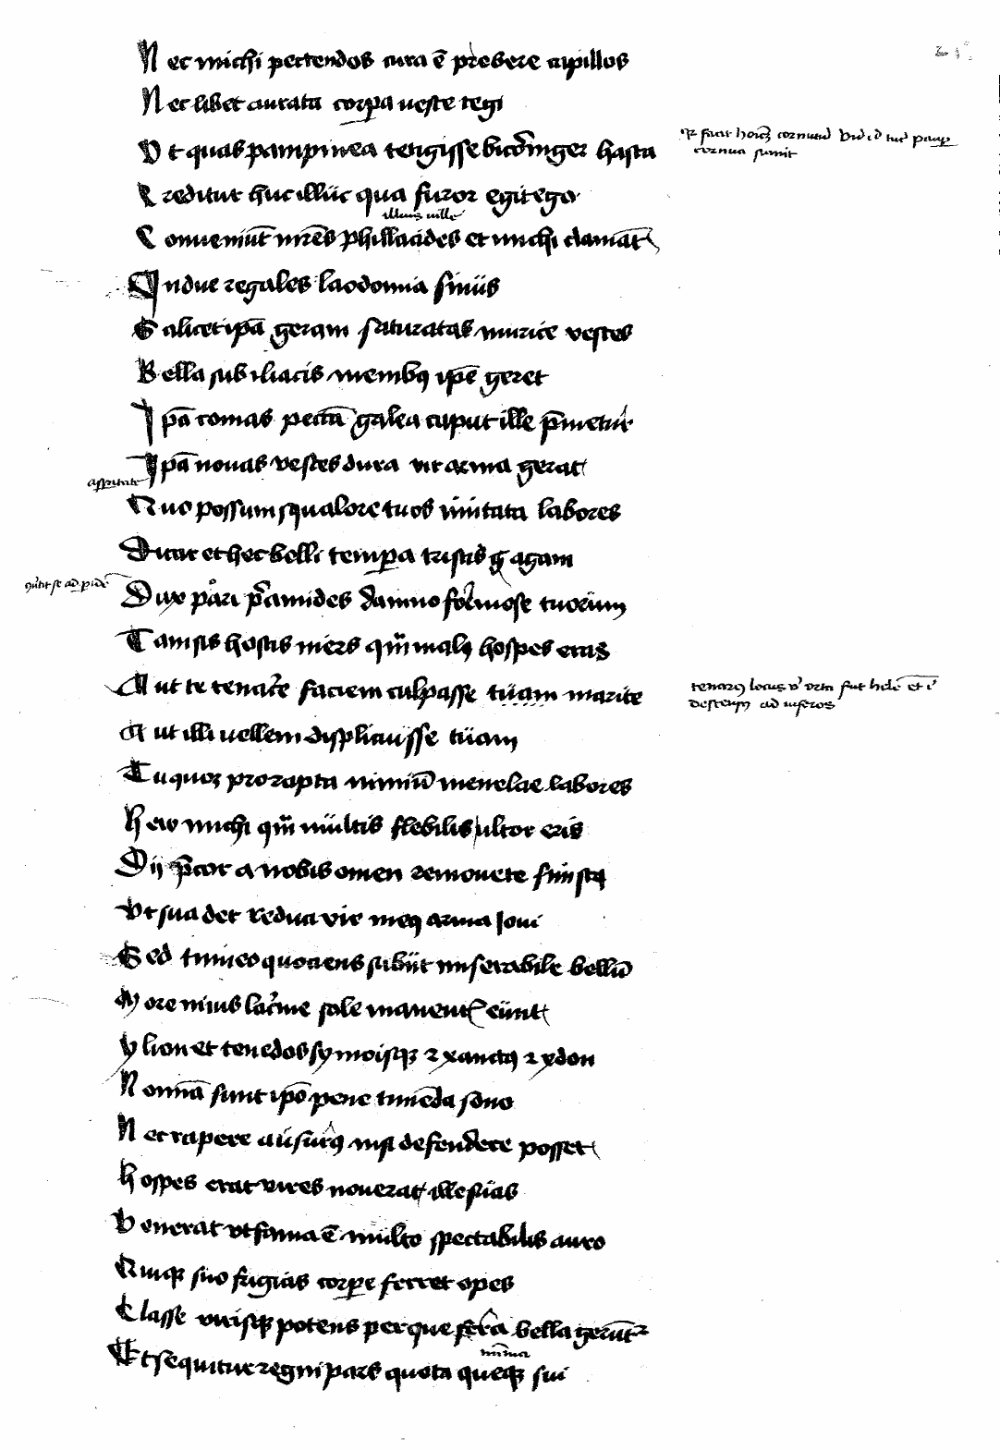 Nec michi pectendos cura ē prebere capillos
Nec libet aurata corpa veste tegi
Vt quas pampinea tetigisse bicorniger hasta
Creditur huc illuc qua furor egit ego
illius ville
Conueniūt mr̄es phillacides et michi clamāt
Indue regales laodomia sinus
Scilicet ipā geram saturatas murice vestes
Bella sub iliacis menibꝫ ipē geret
Ipā comas pectā galea caput ille p̄metur
Ipā nouas vestes dura vir arma gerat
asperitate
Quo possum squalore tuos imitata labores
Dicar et hec belli tempa tristis agam
Dux pari p̄amides damno formose tuorum
Tam sis hostis iners qm̄ malꝰ hospes eras
Aut te tenare faciem culpasse tuam marite
tenarꝰ locus
descensꝰ ad inferos
Aut illi vellem displicuisse tuam
Tu quoqꝫ pro rapta nimiū menelae labores
Hew michi qm̄ multis flebilis ultor eris
Dij p̄cor a nobis omen remouete sinistꝝ
Vt sua det reduci vir meꝰ arma Joui
Sed timeo quociens subijt miserabile bellū
More niuis lacͥme sole manentꝭ eunt
ylion et tenedos symoisqꝫ ⁊ xanctꝰ ⁊ ydon
Nomīa sunt ipō pene timēda sono
Nec rapere ausurꝰ nisi defendere posset
Hospes erat vires nouerat ille suas
Venerat vt fama ē multo spectabilis auro
Quiqꝫ suo frigias corpe ferret opes
Classe virisqꝫ potens per que fera bella gerūtꝛ
Et sequitur regni pars quota queqꝫ sui